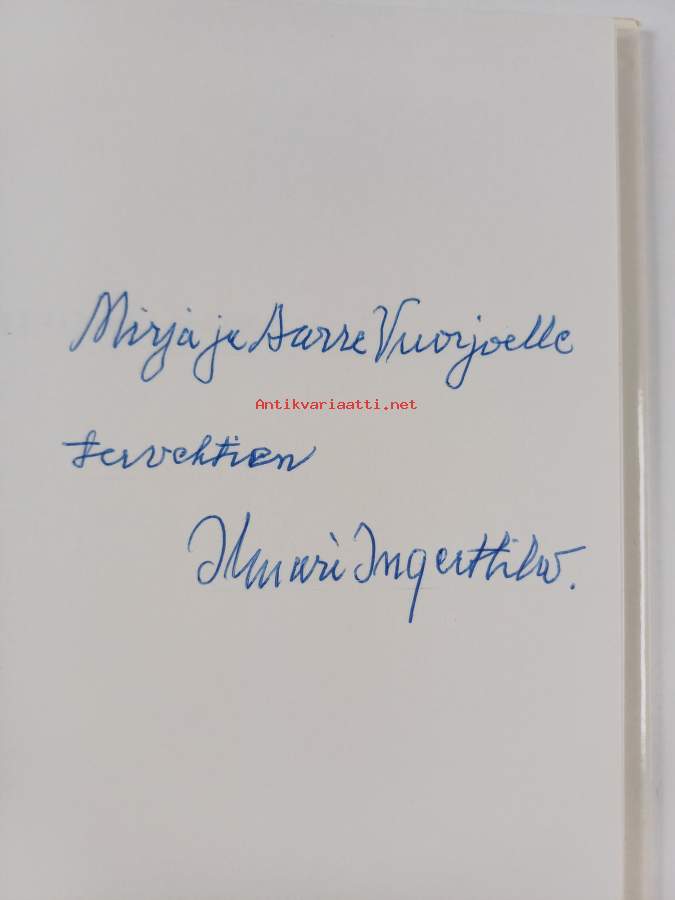 Mirja ja Aarre Vuorjoelle
Antikvariaatti.net
tervehtien
Ilmari Ingerttilä.